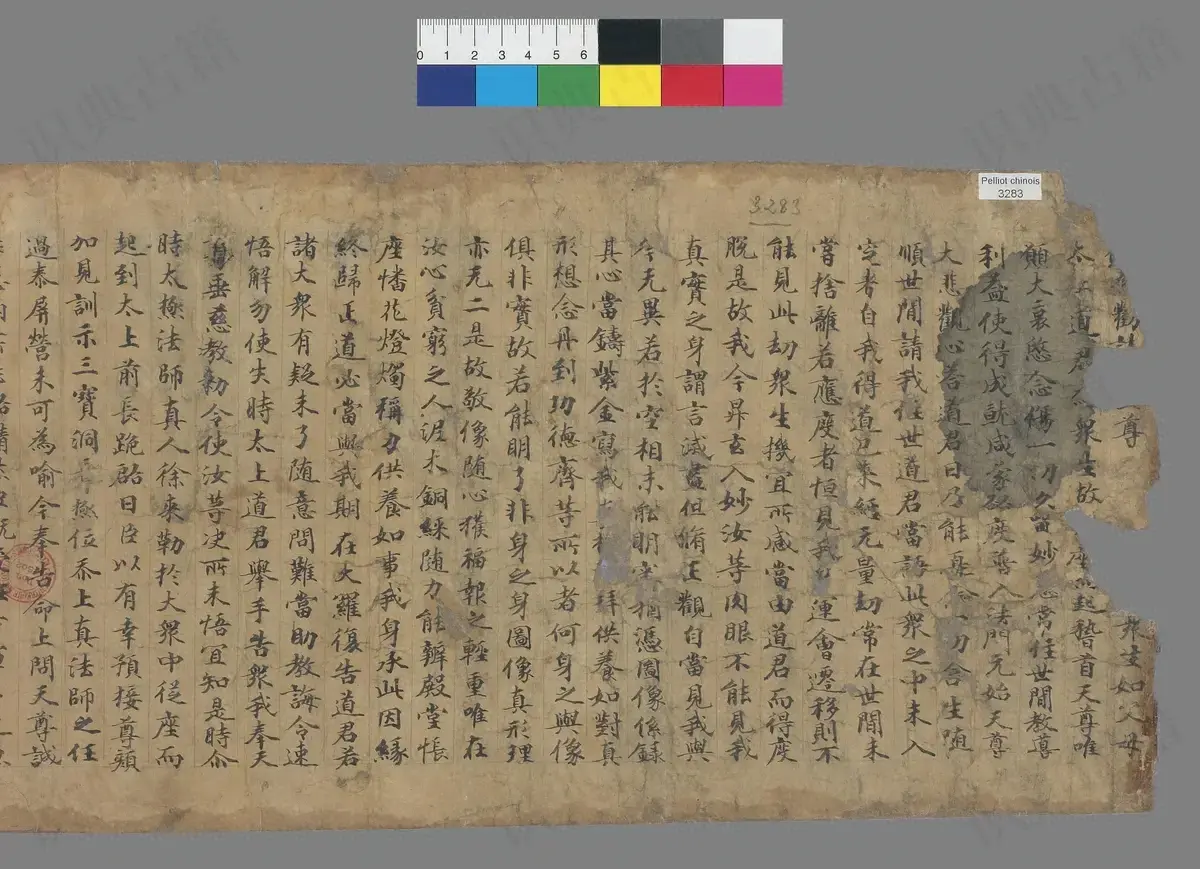 0 1 2 3 4 5 6
Pelliot chinois
3283
3283
勸 尊 衆生如父母
太 道君 衆生故 座 起稽首天尊唯
願大哀愍念傷一切久留妙 常住世間教導
利益使得成就咸蒙 度普入法門元始天尊
大悲觀心荅道君曰乃能 一切含生随
順世間請我住世道君當語此衆之中未入
空者自我得道已來經无量劫常在世間未
嘗捨離若應度者恒見我 運會遷移則不
能見此劫衆生機宜所感當由道君而得度
脫是故我今昇玄入妙汝等肉眼不能見我
真實之身謂言滅盡但脩正觀自當見我與
今无異若於空相未能明 猶憑圖像係録
其心當鑄紫金寫我 拜供養如對真
形想念丹到功德齊等所以者何身之與像
俱非實故若能明了非身之身圖像真形理
亦无二是故敬像随心獲福報之輕重唯在
汝心貧窮之人泥木銅綵随力能辦殿堂帳
座幡花燈燭稱力供養如事我身承此因緣
終歸正道必當與我期在大羅復告道君若
諸大衆有疑未了随意問難當助教誨令速
悟解勿使失時太上道君舉手告衆我奉天
尊垂慈教勅令使汝等决所未悟宜知是時尒
時太極法師真人徐來勒於大衆中從座而
起到太上前長跪啟曰臣以有幸預接尊顏
加見訓示三寶洞 位忝上真法師之任
過泰屏營未可為喻今奉告命上問天尊誠